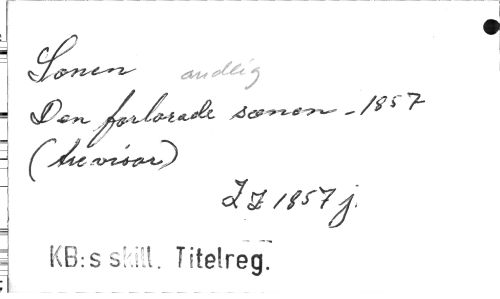 Sonen andlig
Den forlorade sonen - 1857
(tre visor)
1857 j.
KB:s skill. Titelreg.